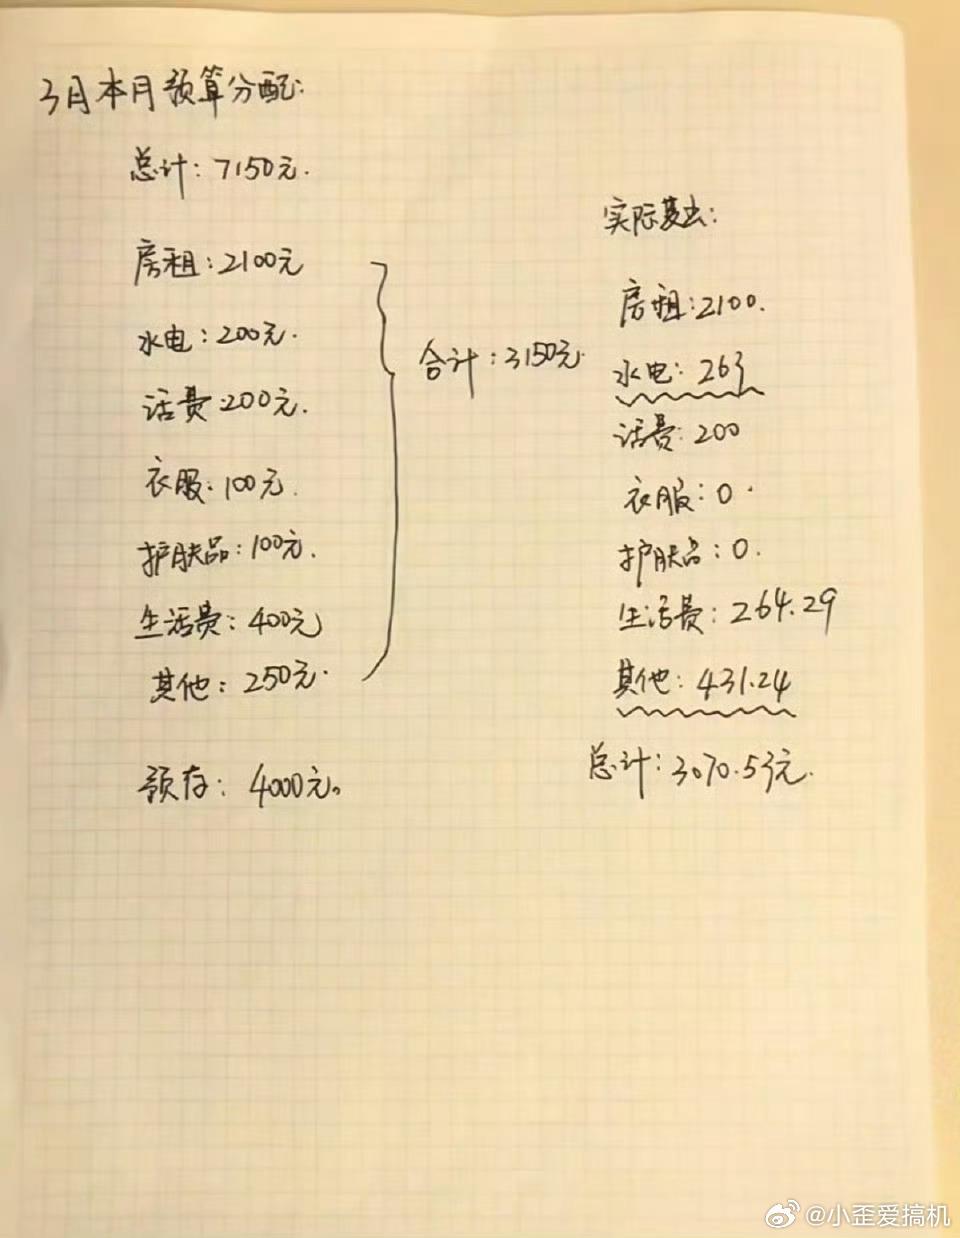 3月本月预算分配:
总计: 7150元.
房租: 2100元
水电: 200元.
话费 200元.
衣服: 100元.
护肤品: 100元.
生活费: 400元
其他: 250元.
合计: 3150元.
预存: 4000元。
实际支出:
房租: 2100.
水电: 263
话费: 200
衣服: 0.
护肤品: 0.
生活费: 264.29
其他: 431.24
总计: 3070.53元.
@小歪爱搞机